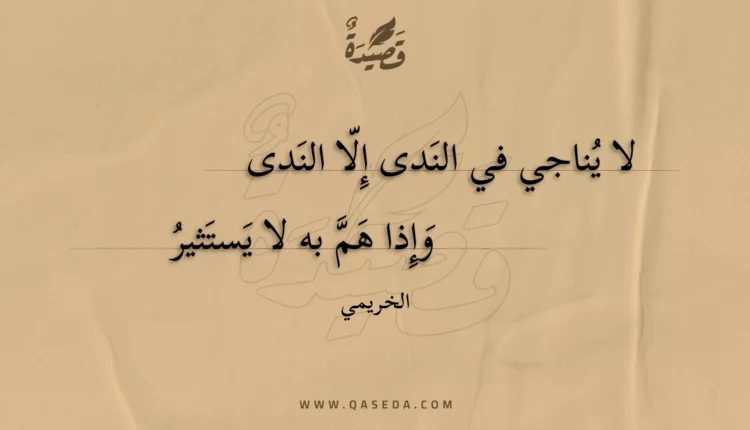 قَصِيدَةٌ
لا يُناجي في النَدى إِلّا النَدى
وَإِذا هَمَّ به لا يَستَثيرُ
الخريمي
WWW.QASEDA.COM